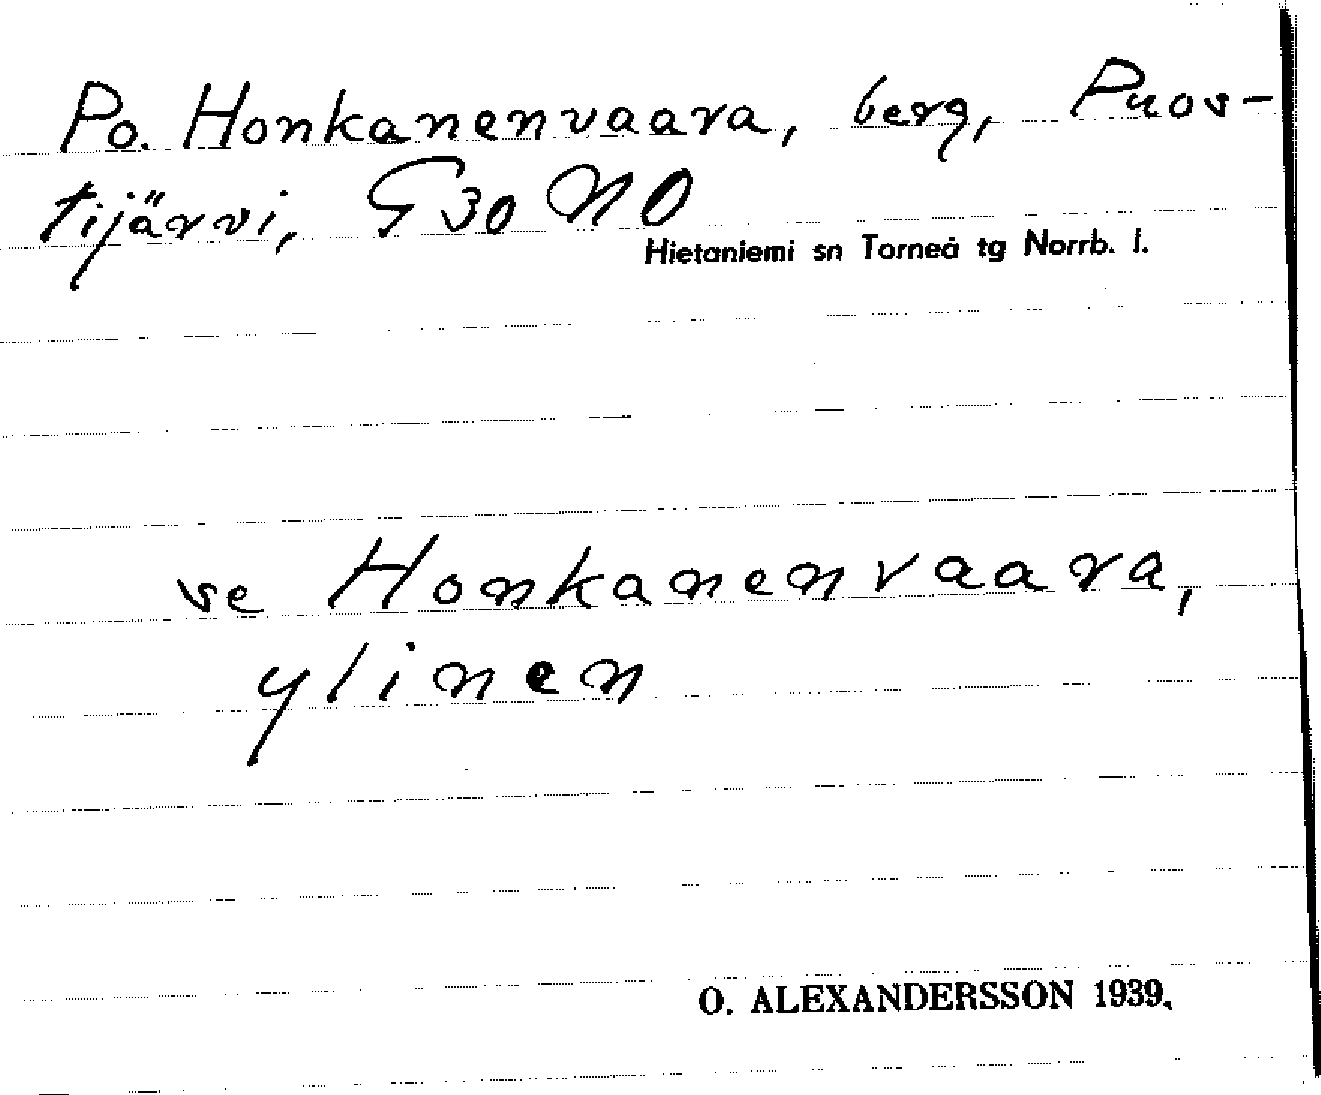 Po. Honkanenvaara, berg, Puos-
tijärvi, G30 NO
Hietaniemi sn Torneå tg Norrb. l.
se Honkanenvaara,
ylinen
O. ALEXANDERSSON 1939.